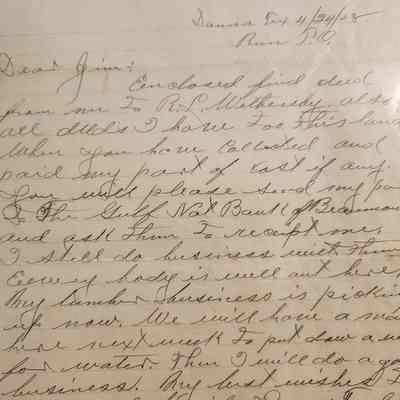 Donna Tex 4/24/28
Run P.O.
Dear Jim:
Enclosed find deed
from me To R.L. Wethersby. also
all deeds I have For This land
When you have Collected and
paid my part of Cost if any.
You will please send my pa
To The Gulf Nat Bank of Beaumon
and ask Them To receipt me.
I still do business with Them
Every body is well out here
My lumber business is pickin
up now. We will have a
here next week To put down a w
for water. Then I will do a go
business. My best wishes T